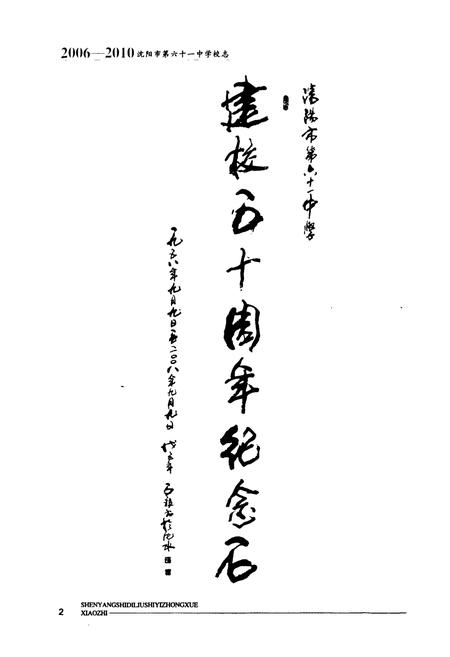 2006—2010沈阳市第六十一中学校志
瀋陽市第六十一中學
建校五十周年纪念石
一九五八年九月九日至二〇〇八年九月九日
2
SHENYANGSHIDILIUSHIYIZHONGXUE
XIAOZHI